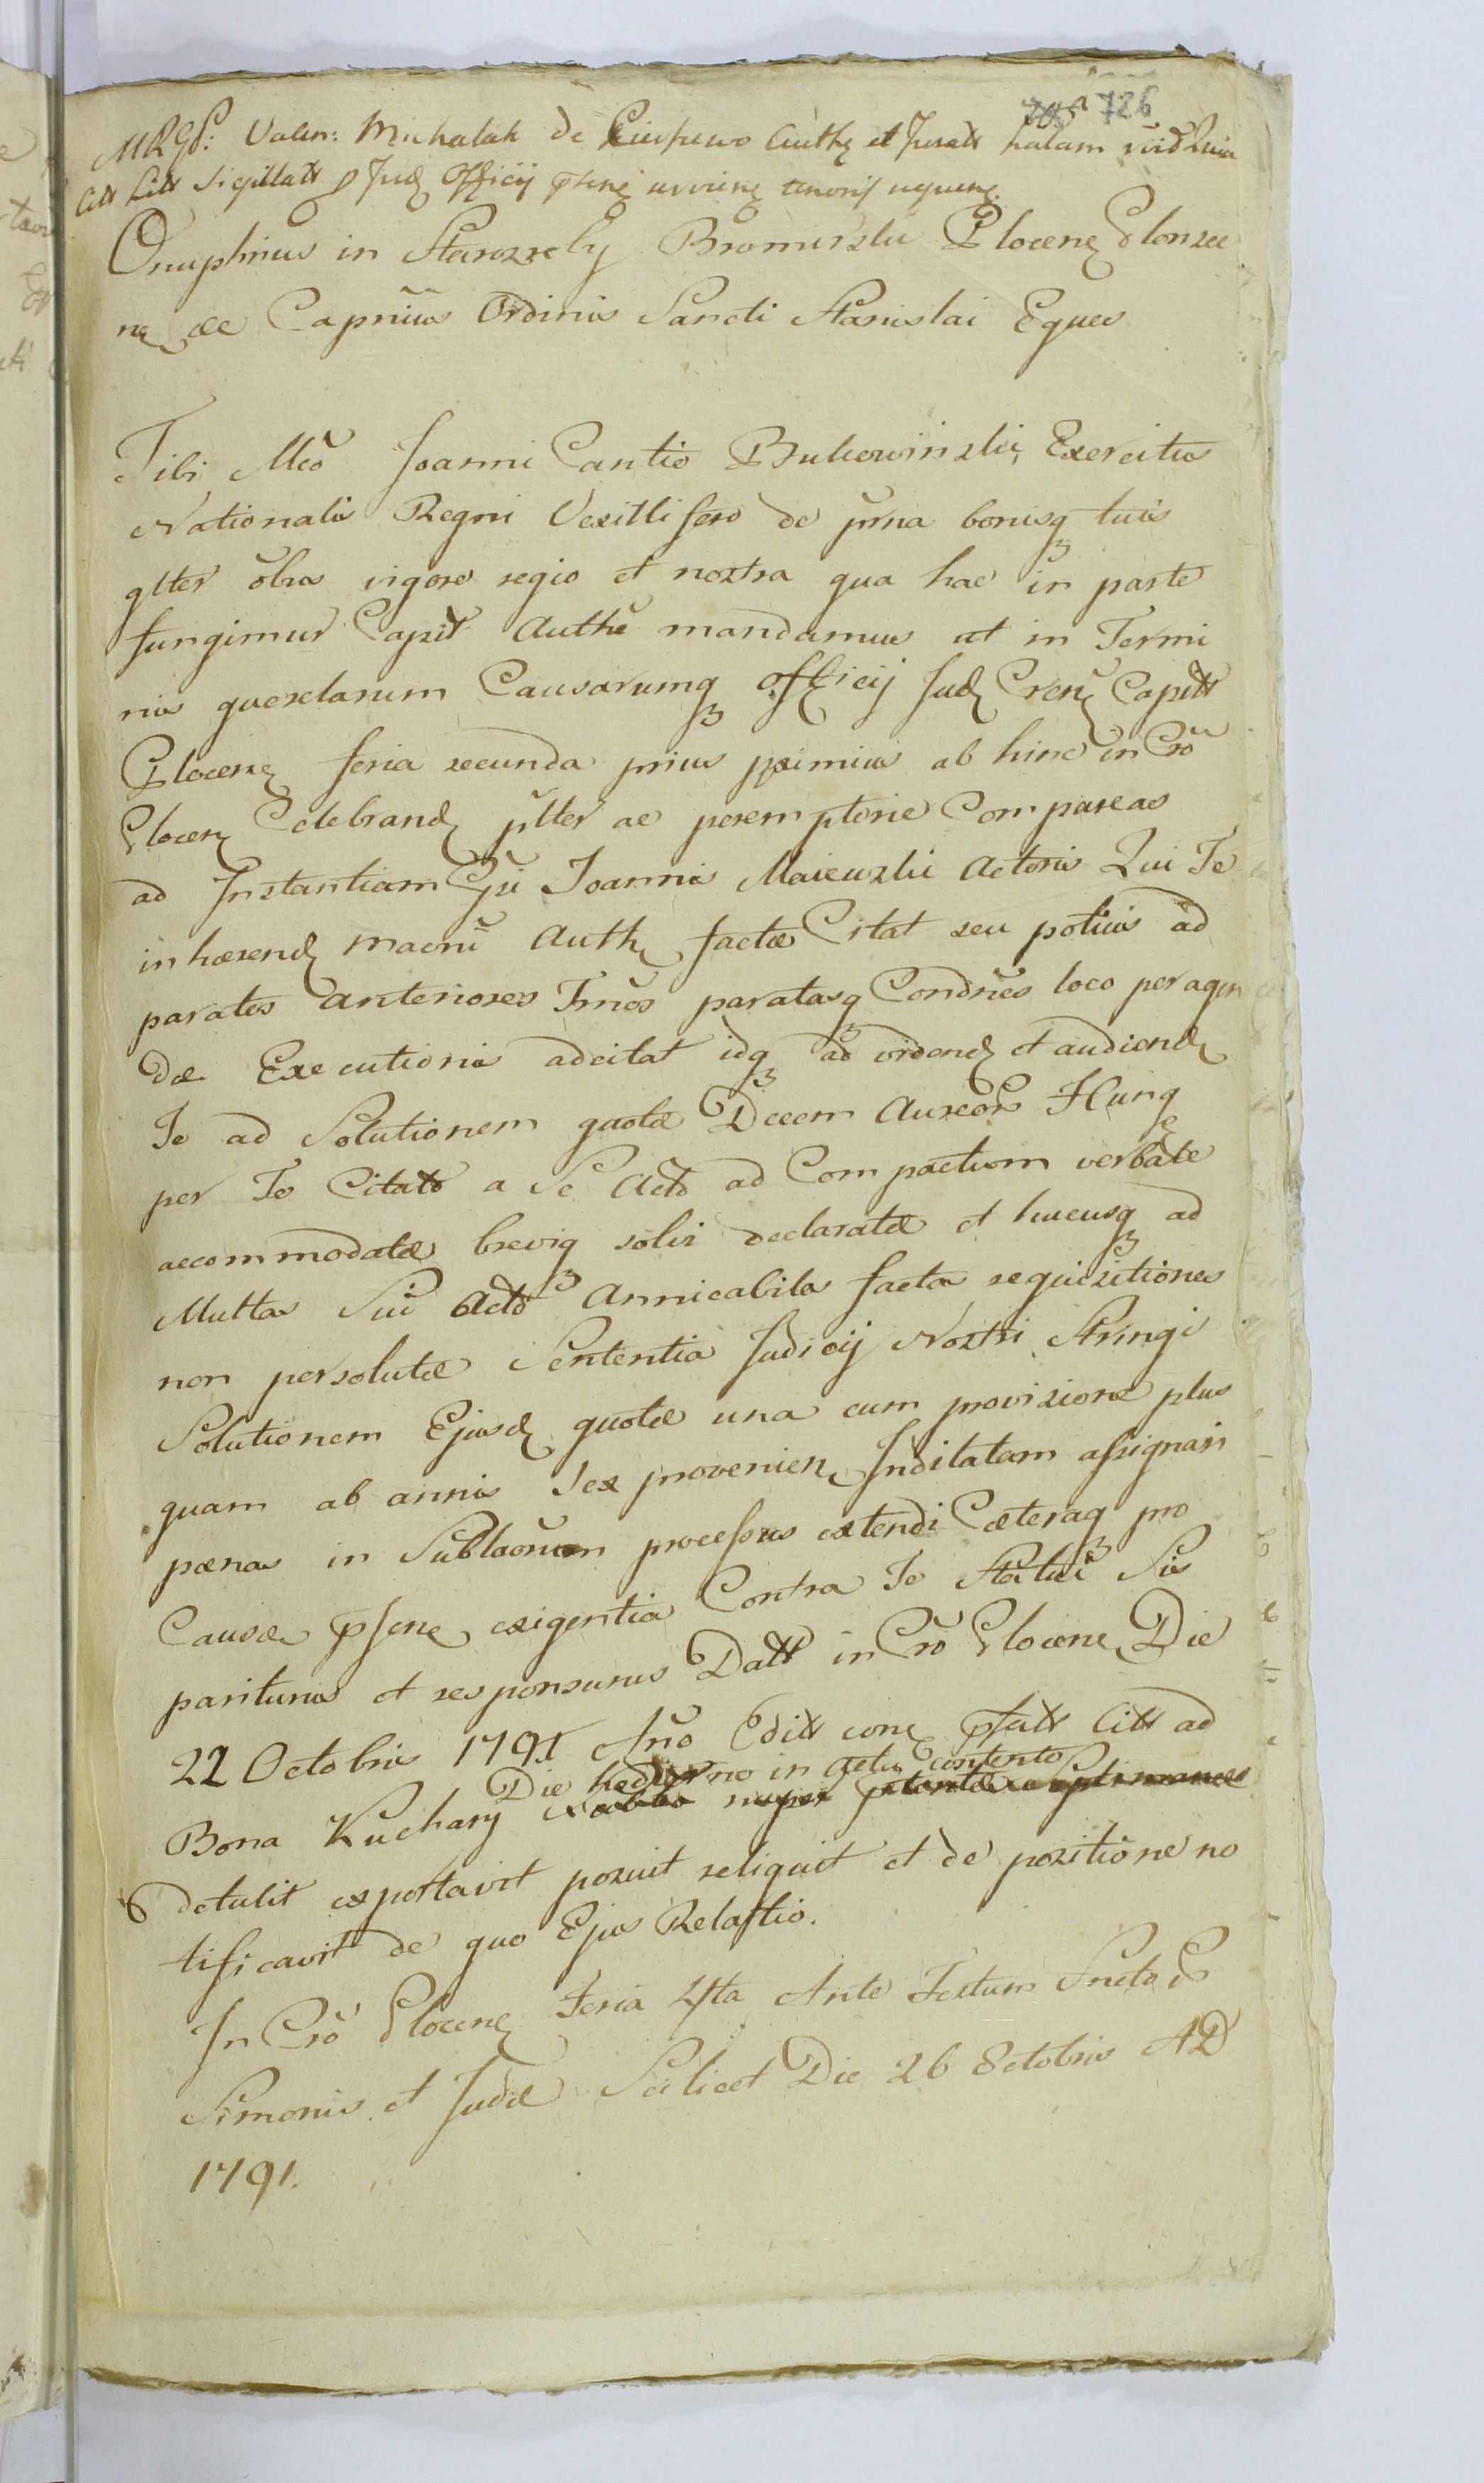 726
MRGS: Valen: Michalak de Ciesewo Auth et Juratt palam vid Quia
Citt Litt Sigillatt p Jud Officij psenę tenoris sequenę
Onuphrius in Starozreby Bromirzki Plocenę Plonzce
nę ae Capnius Ordinis Sancti Stanislai Eques
Tibi Mco Joanni Cantio Bukowinzki, Exercitus
Nationalis Regni Vexillifero de prna bonisq tuis
glter obus vigore regio et nostra qua hac in parte
fungimur Capit Authe mandamus ut in Termi
nis querelarum Causarumq officij Jud Crenę Capitt
Plocenę feria secunda prius pximius ab hinc in Cro
Plocenę Celebrand plter ac peremptorie Compareas
ad Instantiam Gsi Joannis Maiewzki Actoris Qui Te
inhærend macni Auth factæ Citat seu potius ad
paratos anteriores Tnos paratasq Condnes loco peragen
dæ Executionis adcitat idq ad vidend et audiend
Te ad Solutionem quotæ Decem Aureor Hung
per Te Citato a Se Acto ad Compactum verbale
accommodatæ breviq solvi declaratæ et hucusq ad
Multas Sui Acto Amicabila facta requizitiones
non persolutæ Sententia Judicij Nostri Stringi
Solutionem Ejusd quotæ una cum provizione plus
quam ab annis Sex provenien Inditatam assignari
pænas in Sublaonem processus extendi Cæteraq pro
Causæ psenę exigentia Contra Te Statui Sis
pariturus et responsurus Datt in Cro Plocenę Die
22 Octobris 1791 Ano Editt conę psatt Litt ad
Die hodierno in actu contento
Bona Kuchary
detulit exportavit pozuit reliquit et de pozitione no
tificavit de quo Ejus Relatio.
In Cro Plocenę Feria 4ta Ante Festum Sncto
Simonis et Judæ Scilicet Die 26 8ctobris AD
1791.